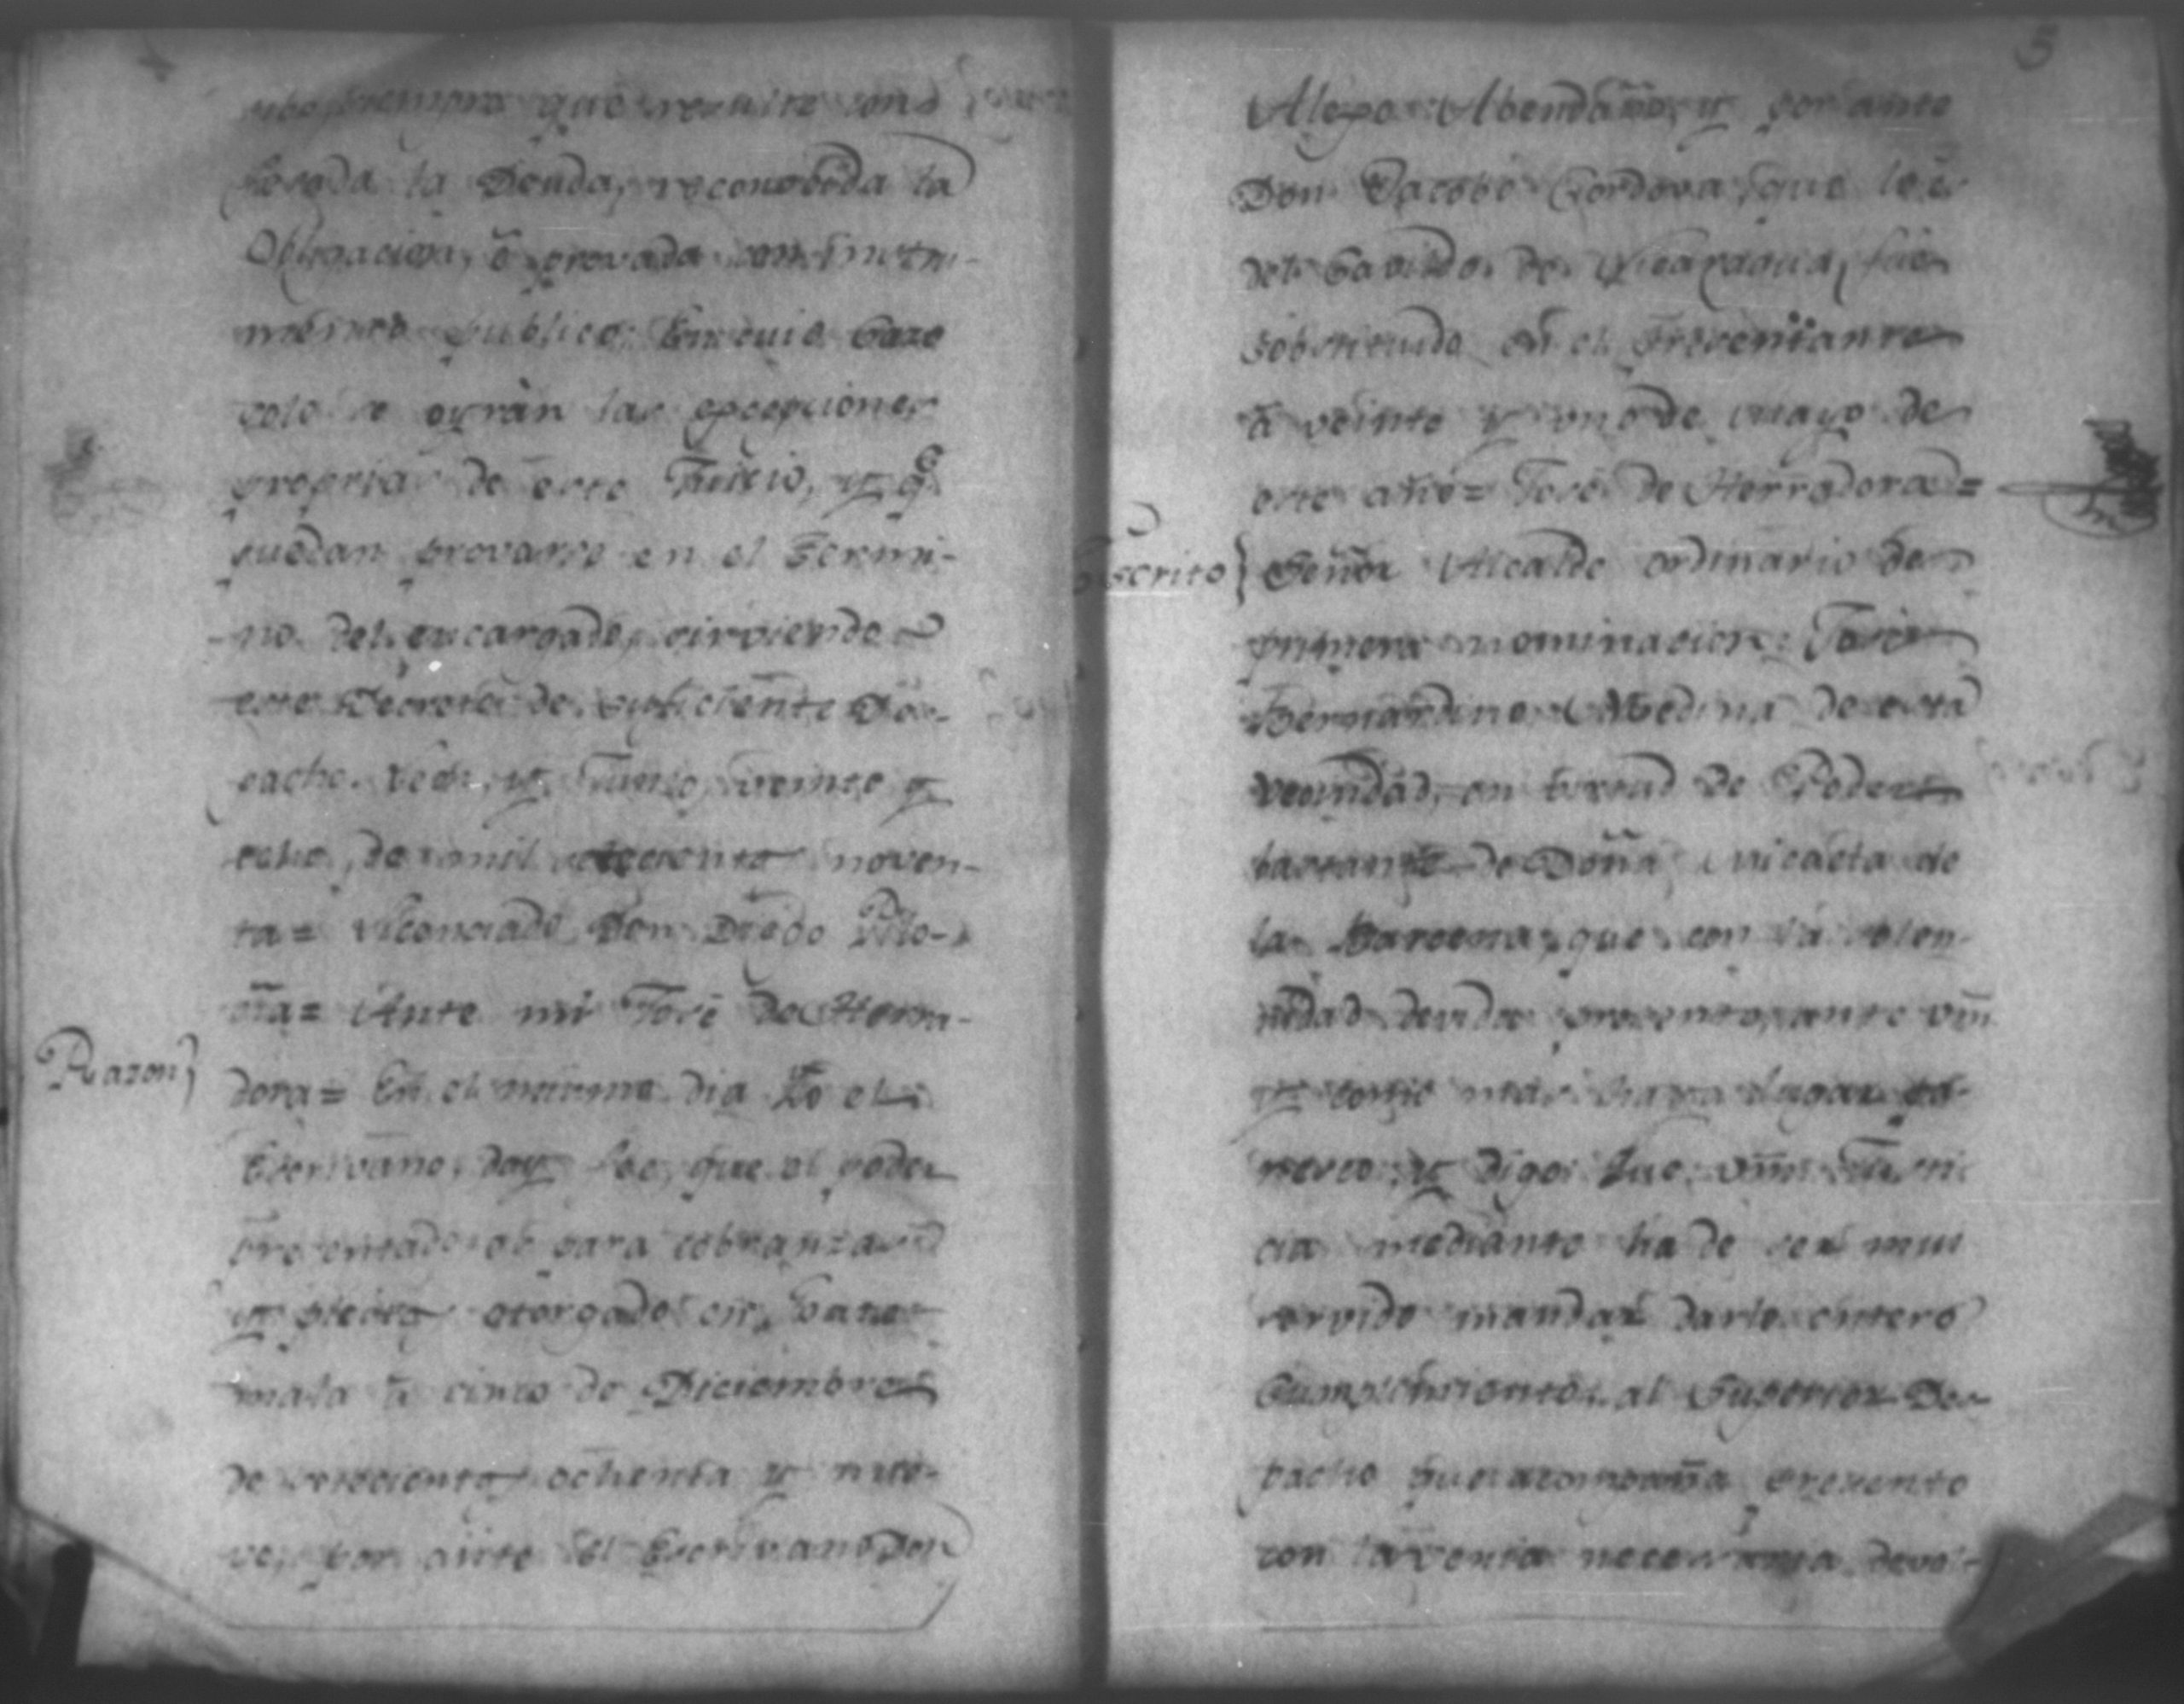 que resulte con
fesada la Deuda, reconosida la
Obligacion, ô provada con instru-
mento publico: En cuio caso
solo se oyràn las excepciones
proprias de este Juisio, y q.e
puedan provarse en el termi-
no del encargado, sirviendo
este Decreto de suficiente Des-
pacho. Leon, y Junio veinte y
ocho, de mil setecientos noven-
ta = Licenciado Don Diego Pilo-
ña = Ante mi José de Herra-
Razon
dora = En el mismo dia Yo el
Escrivano, doy fee, que el poder
presentado es para cobranzas
y pleitos otorgado en Guate-
mala â cinco de Diciembre
de setecientos ochenta y nue-
ve, por ante el Escrivano Don
5
Alepo Abendaño, y por ante
Don Jacobo Cordova, que lo es
del Cavildo de Nicaragua, fue
sobstituido en el Presentante
â veinte y uno de Mayo de
este año = José de Herradora =
Escrito
Señor Alcalde ordinario de
primera nominacion: Josè
Bernardino Medina de esta
vecindad, en virtud de Poder
bastante de Doña Micaela de
la Barcena, que con la solem-
nidad devida presento, ante Vm̃
y como mas haya lugar pa-
resco, y digo: Que Vm̃ Justi
cia mediante ha de ser mui
servido mandar darle entero
Cumplimiento al Superior Des-
pacho que acompaña presento
con la venia necesaria, devol-